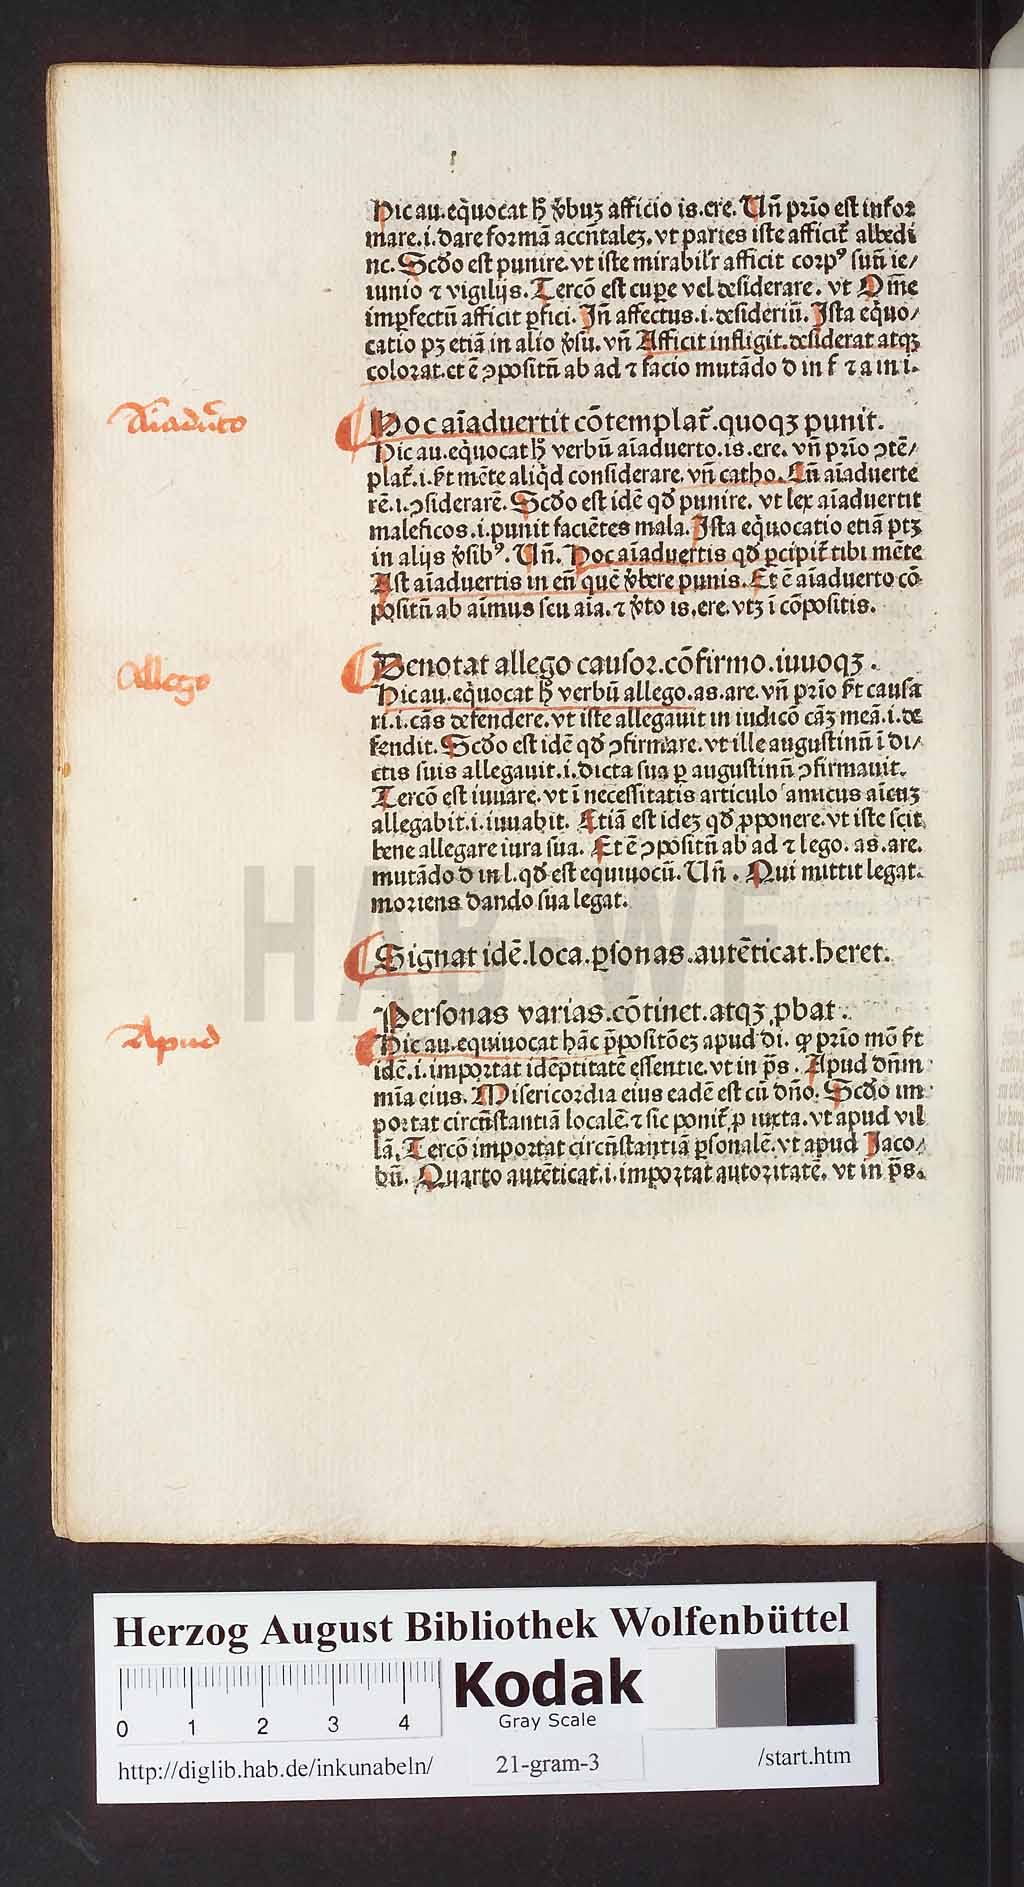 Hic au. eq̄uocat h̄ v̄buʒ afficio is. ere. Un̄ prīo est infor
mare. i. dare formā accn̄taleʒ. vt paries iste afficit᷑ albedi
ne. Scd̄o est punire. vt iste mirabil'r afficit corpꝰ suū ie/
iunio ⁊ vigilijs. Tercō est cuꝑe vel desiderare. vt Om̄e
imꝑfectū afficit ꝑfici. Jn̄ affectus. i. desideriū. Jsta eq̄uo/
catio pʒ etiā in alio v̄su. vn̄ Afficit infligit. desiderat atqʒ
colorat. et ē ꝯpositū ab ad ⁊ facio mutādo d in f ⁊ a in i.
Aīadv̄to
Hoc aīaduertit cōtemplat᷑. quoqʒ punit.
Hic au. eq̄uocat h̄ verbū aīaduerto. is. ere. vn̄ prīo ꝯtē/
plat᷑. i. fit mēte aliq̄d considerare. vn̄ catho. Cū aīaduerte
rē. i. ꝯsiderarē. Scd̄o est idē qd̄ punire. vt lex aīaduertit
maleficos. i. punit faciētes mala. Jsta eq̄uocatio etiā ptʒ
in alijs v̄sibꝰ. Un̄. Hoc aīaduertis qd̄ ꝑcipit᷑ tibi mēte
Ast aīaduertis in eū quē v̄bere punis. Et ē aīaduerto cō
positū ab aīmus seu aīa. ⁊ v̄to is. ere. vtʒ ī cōpositis.
Allego
Denotat allego causor. cōfirmo. iuuoqʒ.
Hic au. eq̄uocat h̄ verbū allego. as. are. vn̄ prīo fit causa
ri. i. cās defendere. vt iste allegauit in iudicō cāʒ meā. i. de
fendit. Scd̄o est idē qd̄ ꝯfirmare. vt ille augustinū ī di/
ctis suis allegauit. i. dicta sua ꝑ augustinū ꝯfirmauit.
Tercō est iuuare. vt ī necessitatis articulo amicus aīcuʒ
allegabit. i. iuuabit. Etiā est ideʒ qd̄ ꝓponere. vt iste scit
bene allegare iura sua. Et ē ꝯpositū ab ad ⁊ lego. as. are.
mutādo d in l. qd̄ est equiuocū. Un̄. Qui mittit legat.
moriens dando sua legat.
Signat idē. loca. ꝑsonas. autēticat. heret.
Personas varias. cōtinet. atqʒ ꝓbat.
Apud
Hic au. equiuocat hāc p̄positōeʒ apud di. ꝙ prīo mō fit
idē. i. importat idēptitatē essentie. vt in p̄s. Apud dn̄m
mīa eius. Misericordia eius eadē est cū dn̄o. Scd̄o im
portat circūstantiā localē. ⁊ sic ponit᷑ ꝓ iuxta. vt apud vil
lā. Tercō importat circūstantiā ꝑsonalē. vt apud Jaco/
bū. Quarto autēticat. i. importat autoritatē. vt in p̄s.
HAB-WF
Herzog August Bibliothek Wolfenbüttel
0 1 2 3 4
Kodak
Gray Scale
http://diglib.hab.de/inkunabeln/ 21-gram-3 /start.htm